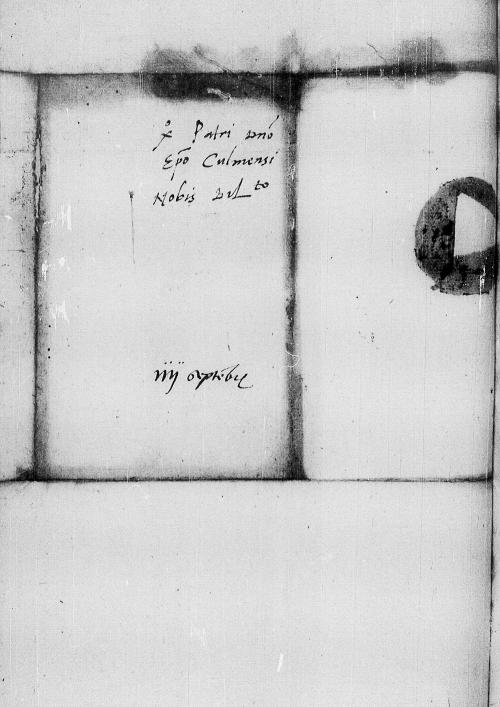 R͞o Patri dn̄o
Ep̄o Culmensi
Nobis dil^to
iiij septēbr